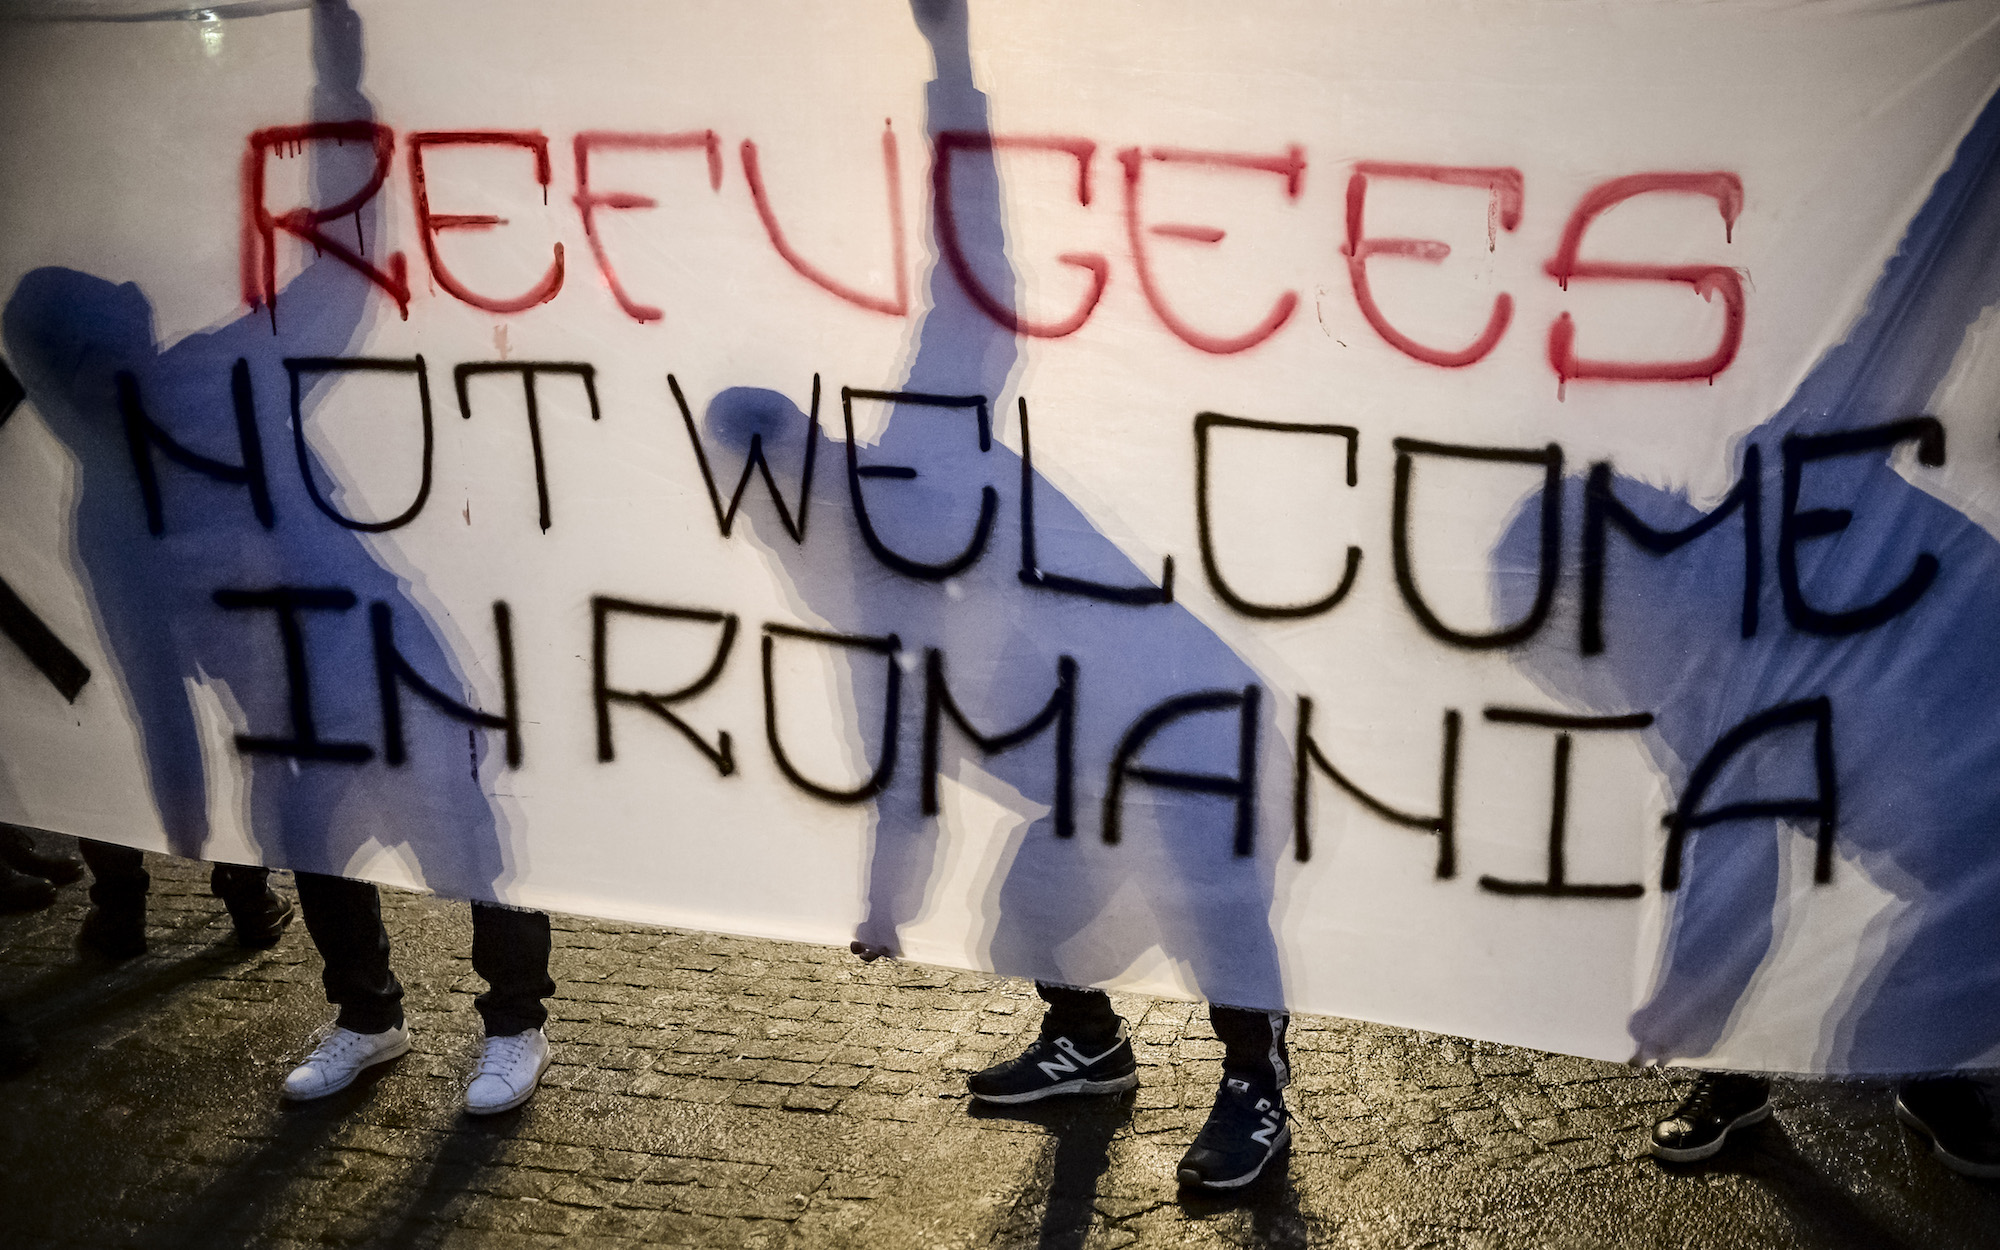 REFUGEES
NOT WELCOME
IN ROMANIA
N
N